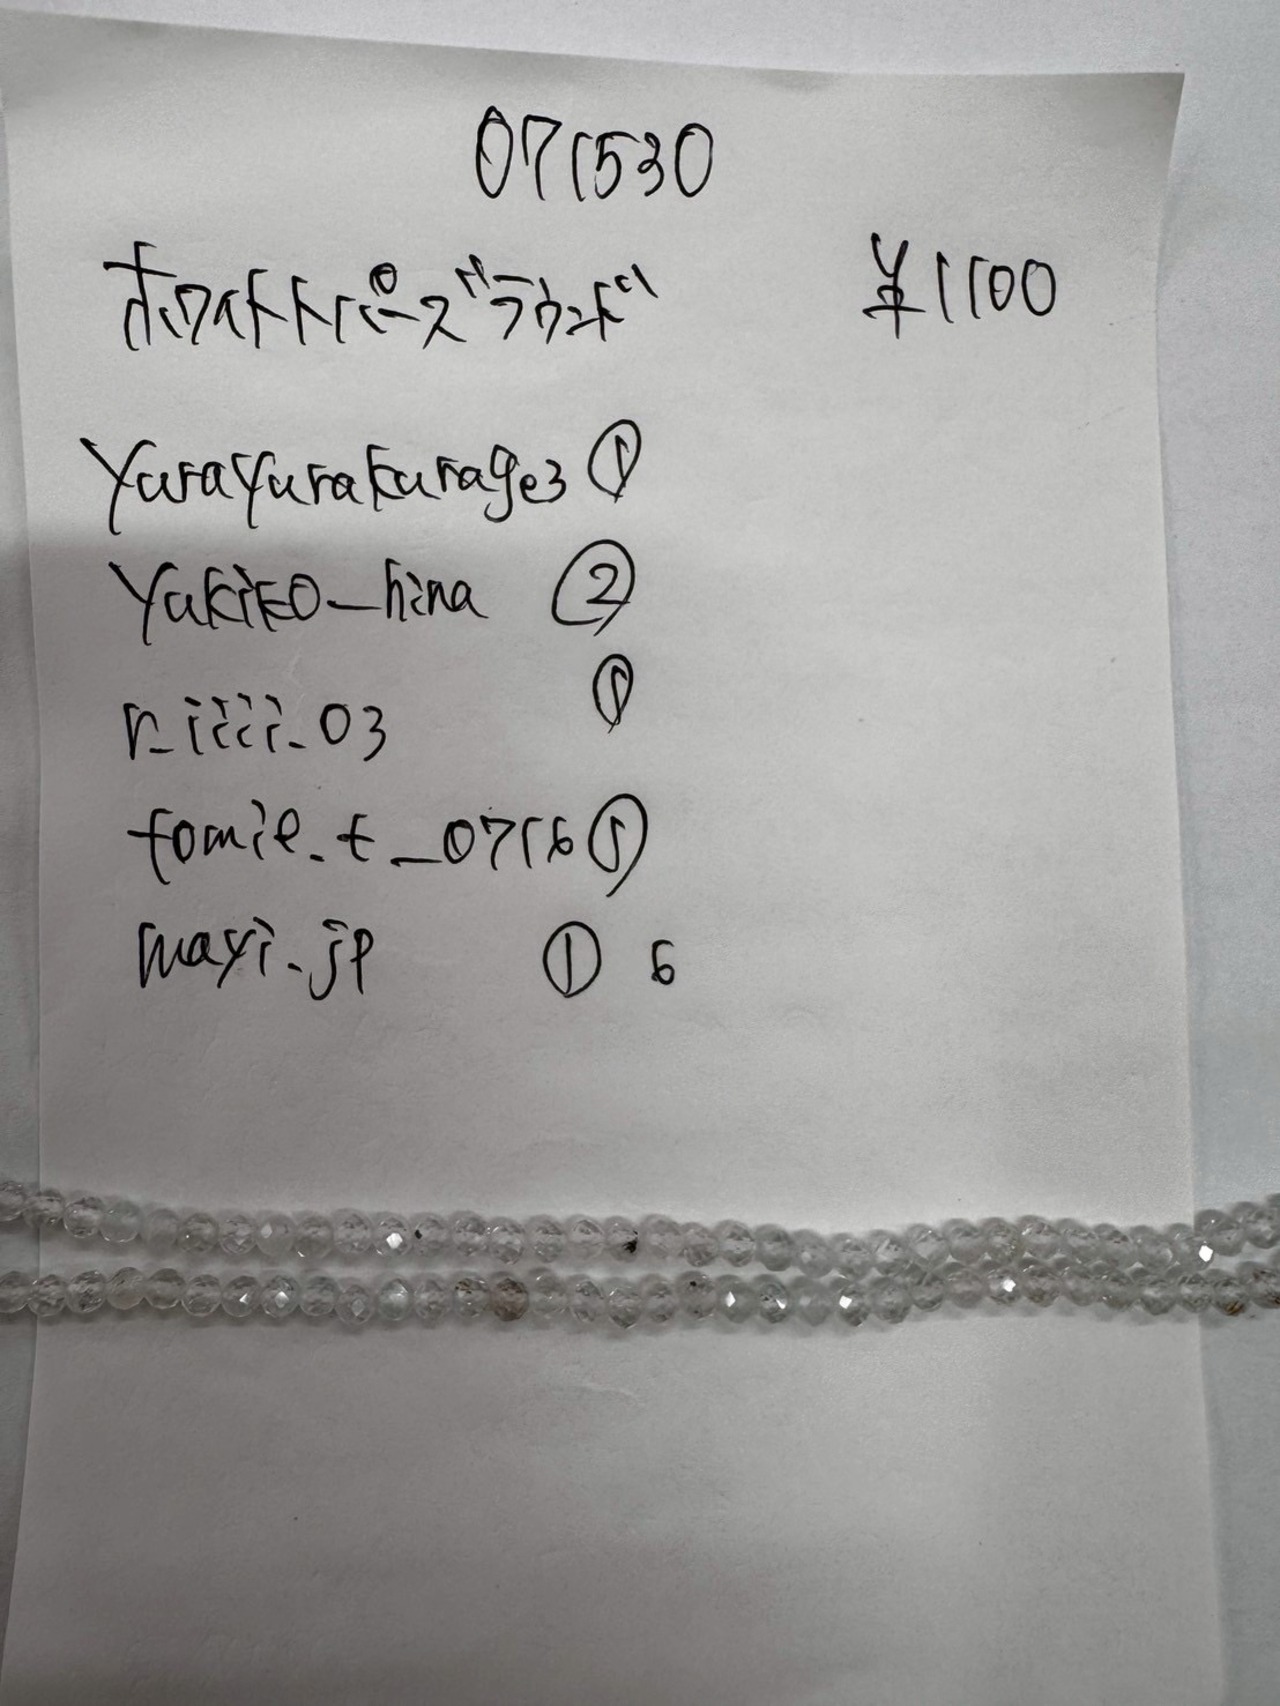 071530
ホワイトトパーズラウンド ¥1100
yurayurakurage3 ①
yukiko_hina ②
n_iiii_03 ①
tomie.t_0716 ①
mayi.jp ① 6